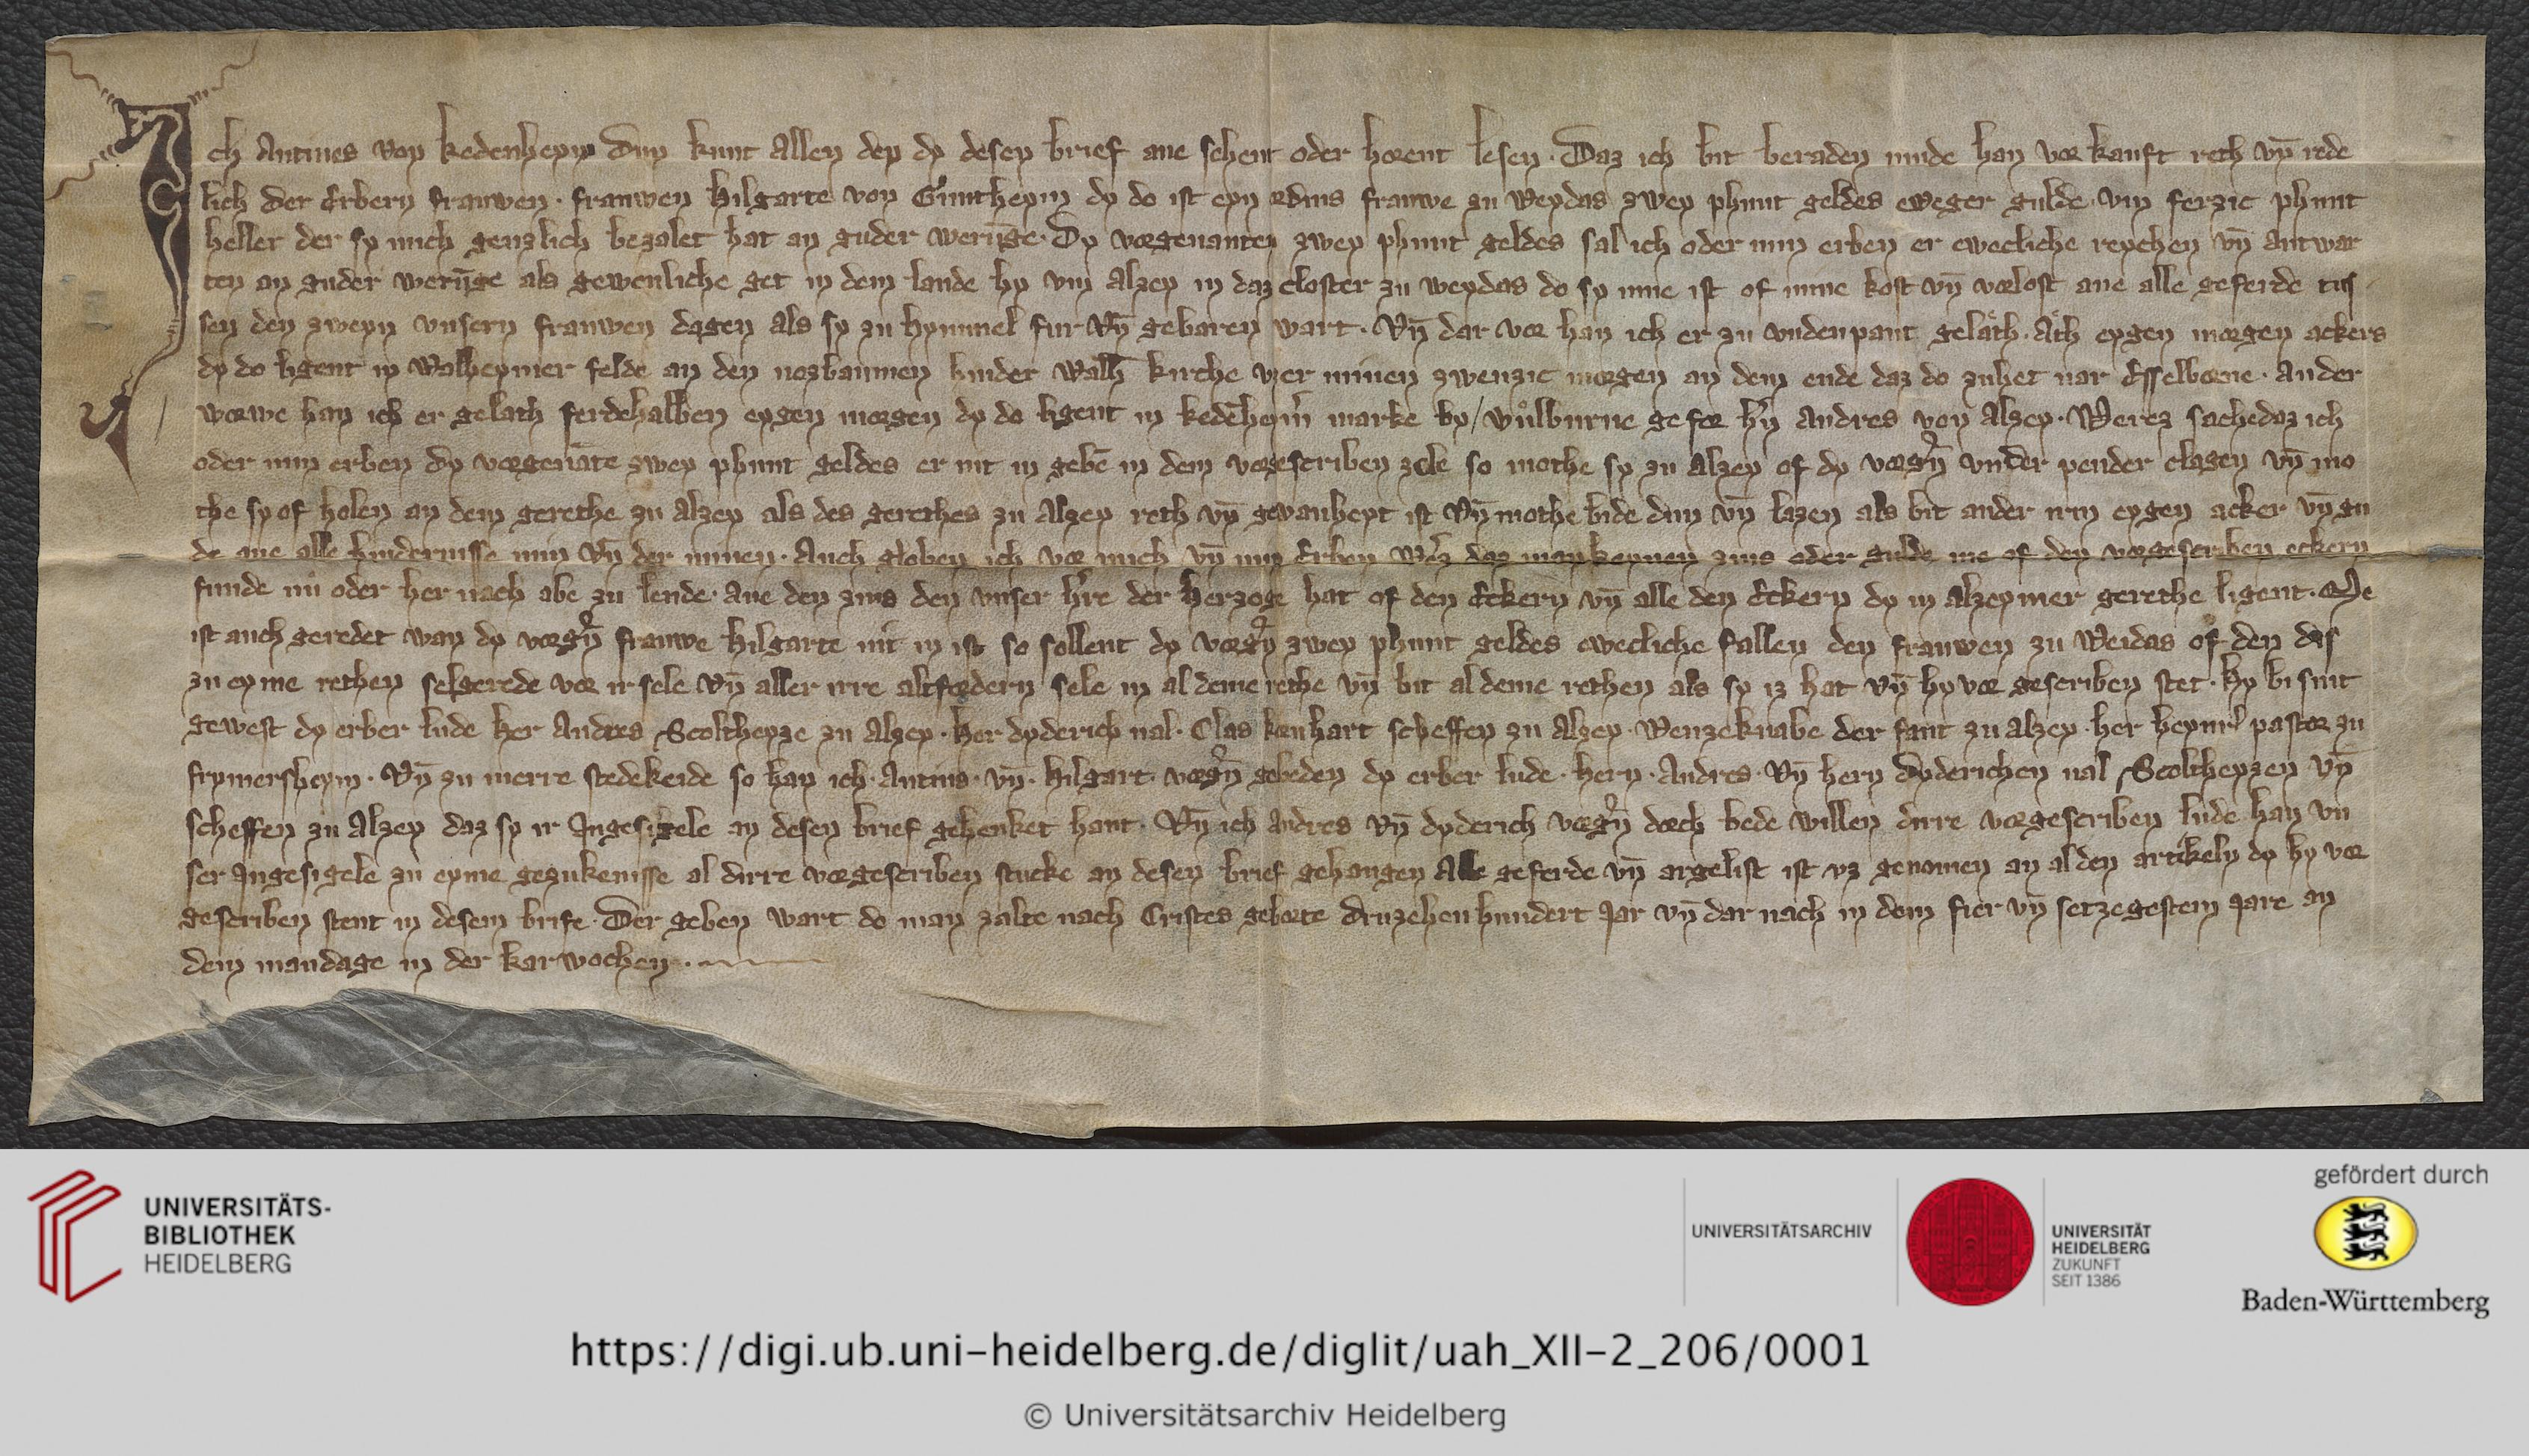 Ich Antmes von kedenheym dun kunt allen den dy desen brief ane sehent oder horent lesen. Daz ich bit beraden mude han vor kauft reth vn̄ rede
lich der Erbern frauwen. frauwen hilgarte von Guntheym dy do ist eyn ordins frauwe zu Weydas zwey phunt geldes eweger gulde. vm ferzic phunt
heller der sy mich genzlich bezalet hat an guder werūge. Dy vorgenanten zwey phunt geldes sal ich oder min erben er ewecliche reychen vn̄ antwar
ten an guder werūge als gewenliche get in dem lande hy vm alzey in daz closter zu weydas do sy inne ist of mine kost vn̄ vorlost ane alle geferde tus
sen den zweyn vnsern frauwen dagen als sy zu hymmel fur vn̄ gebaren wart. Vn̄ dar vor han ich er zu vnden pant gelath. Ath eygen morgen ackers
dy do ligent in Walheymer felde an den nozbaumen hinder Walh̄ kirche vzer minen zwenzic morgen an dem ende daz do zuhet nar Esselborne. Ander
worwe han ich er gelath ferdehalben eygen morgen dy do ligent in kedēheym̄ marke by / wůlburne gefor hn̄ Andres von Alzey. Werez sache daz ich
oder min erben dy vorgenāte zwey phunt geldes er nit in gebē in dem vorgescriben zcile so mothe sy zu alzey of dy vorgn̄ vnder pender clagen vn̄ mo
the sy of holen an dem gerethe zu alzey als des gerethes zu alzey reth vn̄ gewanheyt ist Vn̄ mothe bide dun vn̄ lazen als bit ander irm eygen acker vn̄ gu
de ane alle hindernisse min vn̄ der minen. Auch globen ich vor mich vn̄ min Erben wer̄z daz man keynen zins oder gulde me of den vorgescriben eckern
funde nů oder her nach abe zu lende. ane den zins den vnser hr̄re der herzoge hat of den Eckern vn̄ alle den Eckern dy in alzeymer gerethe ligent. Me
ist auch geredet wan dy vorgn̄ frauwe hilgarte nit in ist so sollent dy vorgn̄ zwey phunt geldes ewecliche fallen den frauwen zu Weidas of den dis
zu eyme rethen selgerede vor ir sele vn̄ aller irre altfordern sele in al deme rethe vn̄ bit al deme rethen als sy iz hat vn̄ hy vor gescriben stet. Hy bi sint
gewest dy erber lude her Andres Scoltheyze zu Alzey. her dyderich nal. Clas lenhart scheffen zu Alzey. Wenzeknabe der faut zu alzey. her heynr̄ pastor zu
frymersheym. Vn̄ zu merre stedekeide so han ich. Antms. vn̄. hilgart. vorgn̄ gebeden dy erber lude. hern. Andres. vn̄ hern Dyderichen nal Scoltheyzen vn̄
scheffen zu Alzey daz sy ir Ingesigele an desen brief gehenket hant. Vn̄ ich Andres vn̄ dyderich vorgn̄ dorch bede willen dirre vorgescriben lude han vn
ser Ingesigele zu eyme gezukenisse al dirre vorgescriben stucke an desen brief gehangen Alle geferde vn̄ argelist ist vz genomen an al den artikeln dy hy vor
gescriben stent in desem brife. Der geben wart do man zalte nach Cristes geborte druzehenhundert Jar vn̄ dar nach in dem fier vn̄ setzegestem Jare an
dem mandage in der karwochen.
UNIVERSITÄTS-
BIBLIOTHEK
HEIDELBERG
UNIVERSITÄTSARCHIV
UNIVERSITÄT
HEIDELBERG
ZUKUNFT
SEIT 1386
gefördert durch
Baden-Württemberg
https://digi.ub.uni-heidelberg.de/diglit/uah_XII-2_206/0001
© Universitätsarchiv Heidelberg